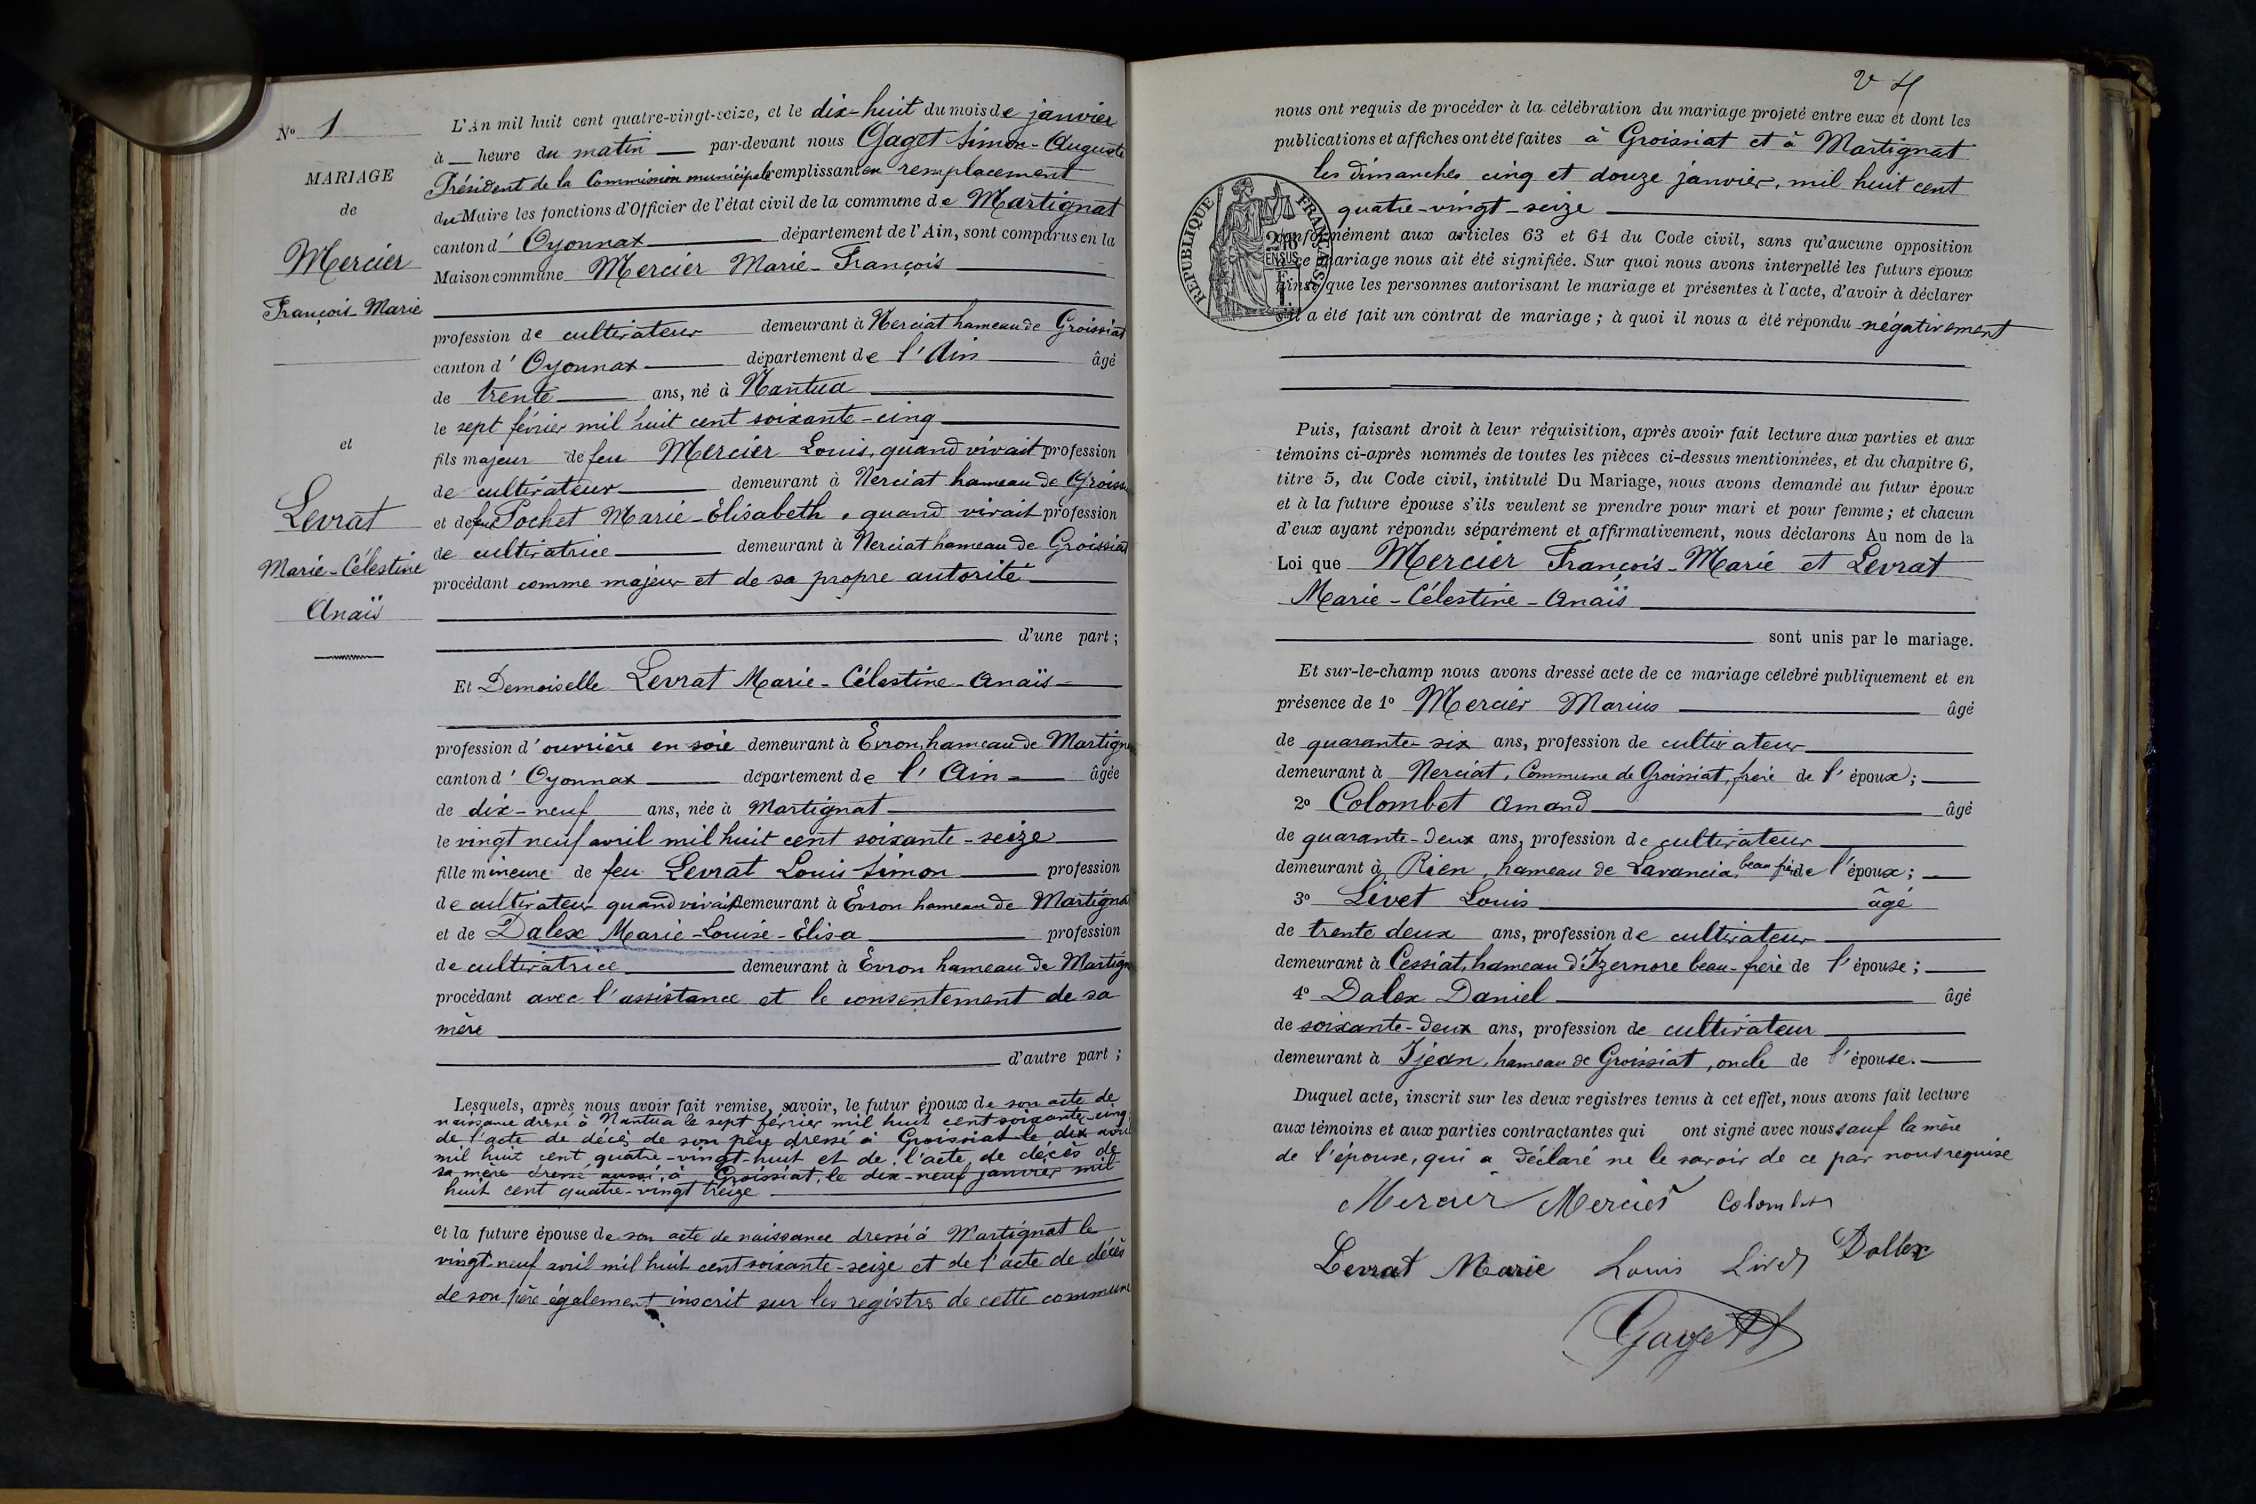 N° 1
MARIAGE
de
Mercier
François-Marie
et
Levrat
Marie-Célestine
Anaïs
L'An mil huit cent quatre-vingt-seize, et le dix-huit du mois de janvier
à — heure du matin — par-devant nous Gaget Simon-Auguste
Président de la Commission municipale remplissant en remplacement
du Maire les fonctions d'Officier de l'état civil de la commune de Martignat
canton d'Oyonnax département de l'Ain, sont comparus en la
Maison commune Mercier Marie-François
profession de cultivateur demeurant à Nerciat hameau de Groissiat
canton d'Oyonnax département de l'Ain âgé
de trente ans, né à Nantua
le sept février mil huit cent soixante-cinq
fils majeur de feu Mercier Louis, quand vivait profession
de cultivateur demeurant à Nerciat hameau de Groissi
et de feu Pochet Marie-Elisabeth, quand vivait profession
de cultivatrice demeurant à Nerciat hameau de Groissiat
procédant comme majeur et de sa propre autorité
d'une part;
Et Demoiselle Levrat Marie-Célestine-Anaïs
profession d'ouvrière en soie demeurant à Evron, hameau de Martign
canton d'Oyonnax département de l'Ain âgée
de dix-neuf ans, née à Martignat
le vingt neuf avril mil huit cent soixante-seize
fille mineure de feu Levrat Louis-Simon profession
de cultivateur quand vivait demeurant à Evron hameau de Martigna
et de Dalex Marie-Louise-Elisa profession
de cultivatrice demeurant à Evron hameau de Martign
procédant avec l'assistance et le consentement de sa
mère
d'autre part;
Lesquels, après nous avoir fait remise, savoir, le futur époux de son acte de
naissance dressé à Nantua le sept février mil huit cent soixante-cinq
de l'acte de décès de son père dressé à Groissiat le dix avril
mil huit cent quatre-vingt-huit et de l'acte de décès de
sa mère dressé aussi, à Groissiat, le dix-neuf janvier mil
huit cent quatre-vingt treize
et la future épouse de son acte de naissance dressé à Martignat le
vingt-neuf avril mil huit cent soixante-seize et de l'acte de décès
de son père également inscrit sur les registres de cette commune
nous ont requis de procéder à la célébration du mariage projeté entre eux et dont les
publications et affiches ont été faites à Groissiat et à Martignat
les dimanches cinq et douze janvier, mil huit cent
quatre-vingt-seize
RÉPUBLIQUE FRANÇAISE
conformément aux articles 63 et 64 du Code civil, sans qu'aucune opposition
à ce mariage nous ait été signifiée. Sur quoi nous avons interpellé les futurs époux
ainsi que les personnes autorisant le mariage et présentes à l'acte, d'avoir à déclarer
s'il a été fait un contrat de mariage; à quoi il nous a été répondu négativement
Puis, faisant droit à leur réquisition, après avoir fait lecture aux parties et aux
témoins ci-après nommés de toutes les pièces ci-dessus mentionnées, et du chapitre 6,
titre 5, du Code civil, intitulé Du Mariage, nous avons demandé au futur époux
et à la future épouse s'ils veulent se prendre pour mari et pour femme; et chacun
d'eux ayant répondu séparément et affirmativement, nous déclarons Au nom de la
Loi que Mercier François-Marie et Levrat
Marie-Célestine-Anaïs
sont unis par le mariage.
Et sur-le-champ nous avons dressé acte de ce mariage célébré publiquement et en
présence de 1° Mercier Marius âgé
de quarante-six ans, profession de cultivateur
demeurant à Nerciat, Commune de Groissiat, frère de l'époux;
2° Colombet Amand âgé
de quarante-deux ans, profession de cultivateur
demeurant à Rien, hameau de Lavancia, beau frère de l'époux;
3° Livet Louis âgé
de trente deux ans, profession de cultivateur
demeurant à Cessiat, hameau d'Izernore beau-frère de l'épouse;
4° Dalex Daniel âgé
de soixante-deux ans, profession de cultivateur
demeurant à Ijean, hameau de Groissiat, oncle de l'épouse.
Duquel acte, inscrit sur les deux registres tenus à cet effet, nous avons fait lecture
aux témoins et aux parties contractantes qui ont signé avec nous sauf la mère
de l'épouse, qui a déclaré ne le savoir de ce par nous requise
Mercier Mercier Colombet
Levrat Marie Louis Livet Dallex
Gaget